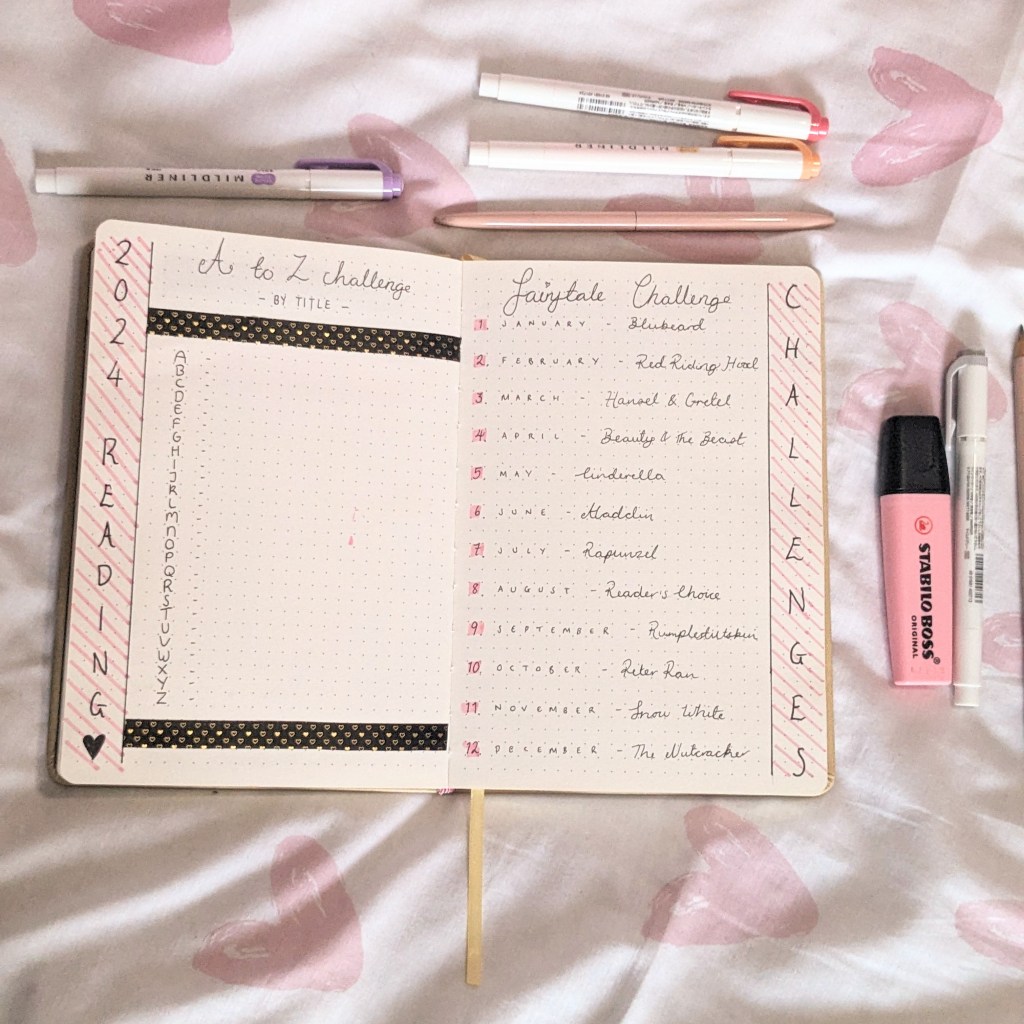 MILDLINER
MILDLINER
2024 READING
A to Z challenge
- BY TITLE -
A -
B -
C -
D -
E -
F -
G -
H -
I -
J -
K -
L -
M -
N -
O -
P -
Q -
R -
S -
T -
U -
V -
W -
X -
Y -
Z -
Fairytale Challenge
1. JANUARY - Blubeard
2. FEBRUARY - Red Riding Hood
3. MARCH - Hansel & Gretel
4. APRIL - Beauty & The Beast
5. MAY - Cinderella
6. JUNE - Aladdin
7. JULY - Rapunzel
8. AUGUST - Reader's Choice
9. SEPTEMBER - Rumplestiltskin
10. OCTOBER - Peter Pan
11. NOVEMBER - Snow White
12. DECEMBER - The Nutcracker
CHALLENGES
STABILO BOSS
ORIGINAL